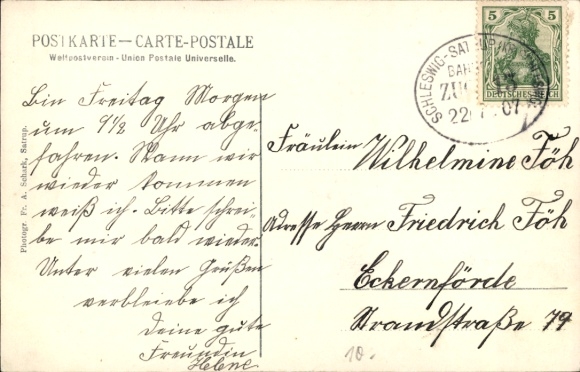 POSTKARTE—CARTE-POSTALE
Weltpostverein - Union Postale Universelle.
Bin Freitag Morgen
um 9 1/2 Uhr abge-
fahren. Wann wir
wieder kommen
weiß ich. Bitte schrei-
be mir bald wieder.
Unter vielen Grüßen
verbleibe ich
deine gute
Freundin
Helene
Photogr. Fr. A. Schark, Satrup.
5 5
DEUTSCHES REICH
SCHLESWIG-SATRUP
BAH
ZU
22 07
Fräulein
Wilhelmine Föh
Adresse Herrn Friedrich Föh
Eckernförde
Strandstraße 79
10.